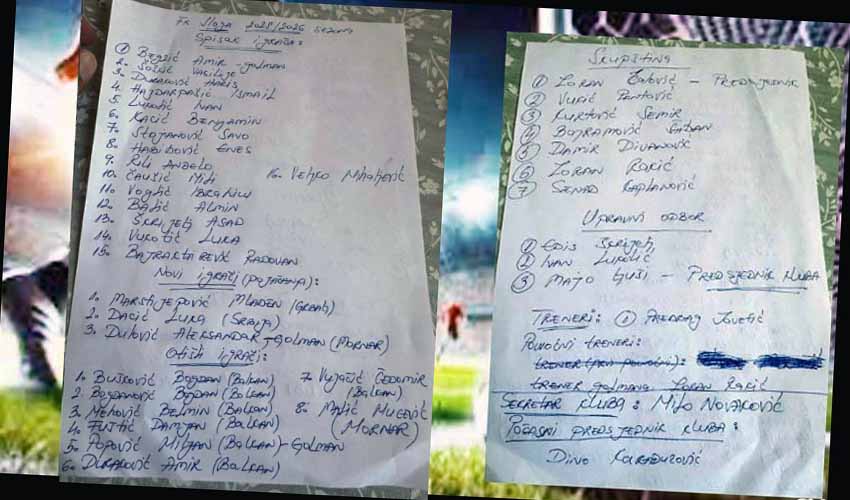 FK Sloga 2025/2026 sezona
Spisak igrača:
1 Begzić Amir - golman
2. Šošić Vasilije
3. Duraković Haris
4. Hajdarpašić Ismail
5. Lukolić Ivan
6. Kacić Benjamin
7. Stojanović Savo
8. Habibović Enes
9. Anđelo
10. Čaušić Miti
11. Ibrahim
12. Balić Almin
13. Škrijelj Asad
14. Vukotić Luka
15. Bajraktarević Radovan
16. Veljko Mihaljević
Novi igrači (pojačanja):
1. Marstijepović Mladen (Grbalj)
2. Dacić Luka (Srbija)
3. Dulović Aleksandar - golman (Mornar)
Otišli igrači:
1. Bušković Bogdan (Balkan)
2. Bogdanović Bogdan (Balkan)
3. Mehović Belmin (Balkan)
4. Fuštić Damjan (Balkan)
5. Popović Miljan (Balkan) - golman
6. Duraković Amir (Balkan)
7. Vujačić Čedomir
(Balkan)
8. Malić Mucević
(Mornar)
Skupština
1 Zoran Čatović - Predsjednik
2 Vukić Pantović
3 Kurtović Semir
4 Bajramović Šaban
5 Damir Divanović
6 Zoran Rakić
7 Senad Kaplanović
Upravni odbor
1 Edis Škrijelj
2 Ivan Lukolić
3 Maljo Guši - Predsjednik kluba
Treneri: 1 Predrag Jovetić
Pomoćni treneri:
trener (prvi pomoćni):
trener golmana Zoran Rakić
Sekretar kluba: Milo Novaković
Počasni predsjednik kluba:
Dino Karađuzović